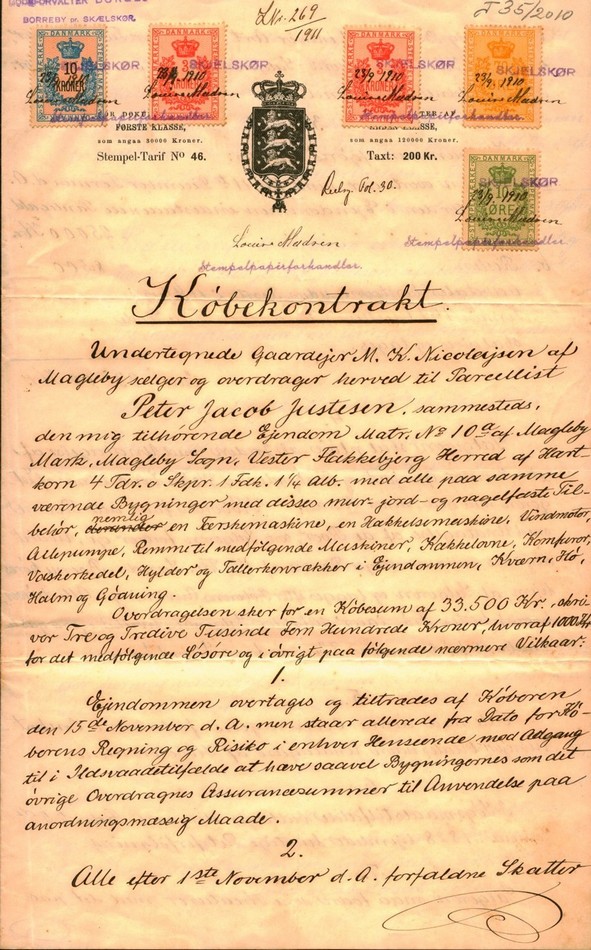 GODSFORVALTER
BORREBY pr. SKÆLSKØR.
L.Nr. 269
1911
J 35/2010
DANMARK
DANMARK
DANMARK
DANMARK
10
KRONER
SKJELSKØR
SKJELSKØR
SKJELSKØR
23/9 1910
23/9 1910
23/9 1910
23/9 1910
Louise Madsen
Louise Madsen
Louise Madsen
Louise Madsen
Stempelpapirforhandler
Stempelpapirforhandler
FØRSTE KLASSE,
KLASSE,
som angaa 30000 Kroner.
som angaa 120000 Kroner.
Stempel-Tarif No 46.
Taxt: 200 Kr.
DANMARK
SKJELSKØR
23/9 1910
ØRE
Louise Madsen
Stempelpapirforhandler
Fol. 30.
Louise Madsen
Stempelpapirforhandler.
Købekontrakt.
Undertegnede Gaardejer M. K. Nicolaijsen af
Magleby sælger og overdrager herved til Parcellist
Peter Jacob Justesen, sammesteds,
den mig tilhørende Ejendom Matr. No 10a af Magleby
Mark, Magleby Sogn, Vester Flakkebjerg Herred af Hart-
korn 4 Tdr. 0 Skpr. 1 Fdk. 1¼ Alb. med alle paa samme
værende Bygninger med disses mur- jord- og nagelfaste Til-
behør, nemlig en Tærskemaskine, en Hakkelsemaskine, Vindmotor,
Ajlepumpe, Remme til medfølgende Maskiner, Kakkelovne, Komfurer,
Vaskerkedel, Hylder og Tallerkenrækker i Ejendommen, Kværn, Hø,
Halm og Gödning.
Overdragelsen sker for en Købesum af 33.500 Kr., skri-
ver Tre og Tredive Tusinde Fem Hundrede Kroner, hvoraf 1000 Kr
for det medfølgende Løsøre og i øvrigt paa følgende nærmere Vilkaar:
1.
Ejendommen overtages og tiltrædes af Køberen
den 15de November d. A. men staar allerede fra Dato for Kø-
berens Regning og Risiko i enhver Henseende med Adgang
til i Ildsvaadetilfælde at hæve saavel Bygningernes som det
øvrige Overdragnes Assurancesummer til Anvendelse paa
anordningsmæssig Maade.
2.
Alle efter 1ste November d. A. forfaldne Skatter